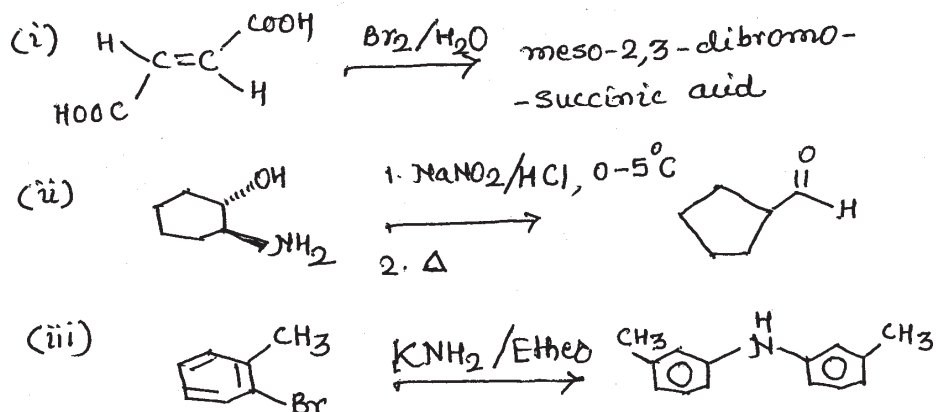 (i) H C=C COOH HOOC H Br2/H2O meso-2,3-dibromo-
-succinic acid
(ii) OH NH2 1. NaNO2/HCl, 0-5°C O H
2. Δ
(iii) CH3 Br KNH2/Ether CH3 H N CH3